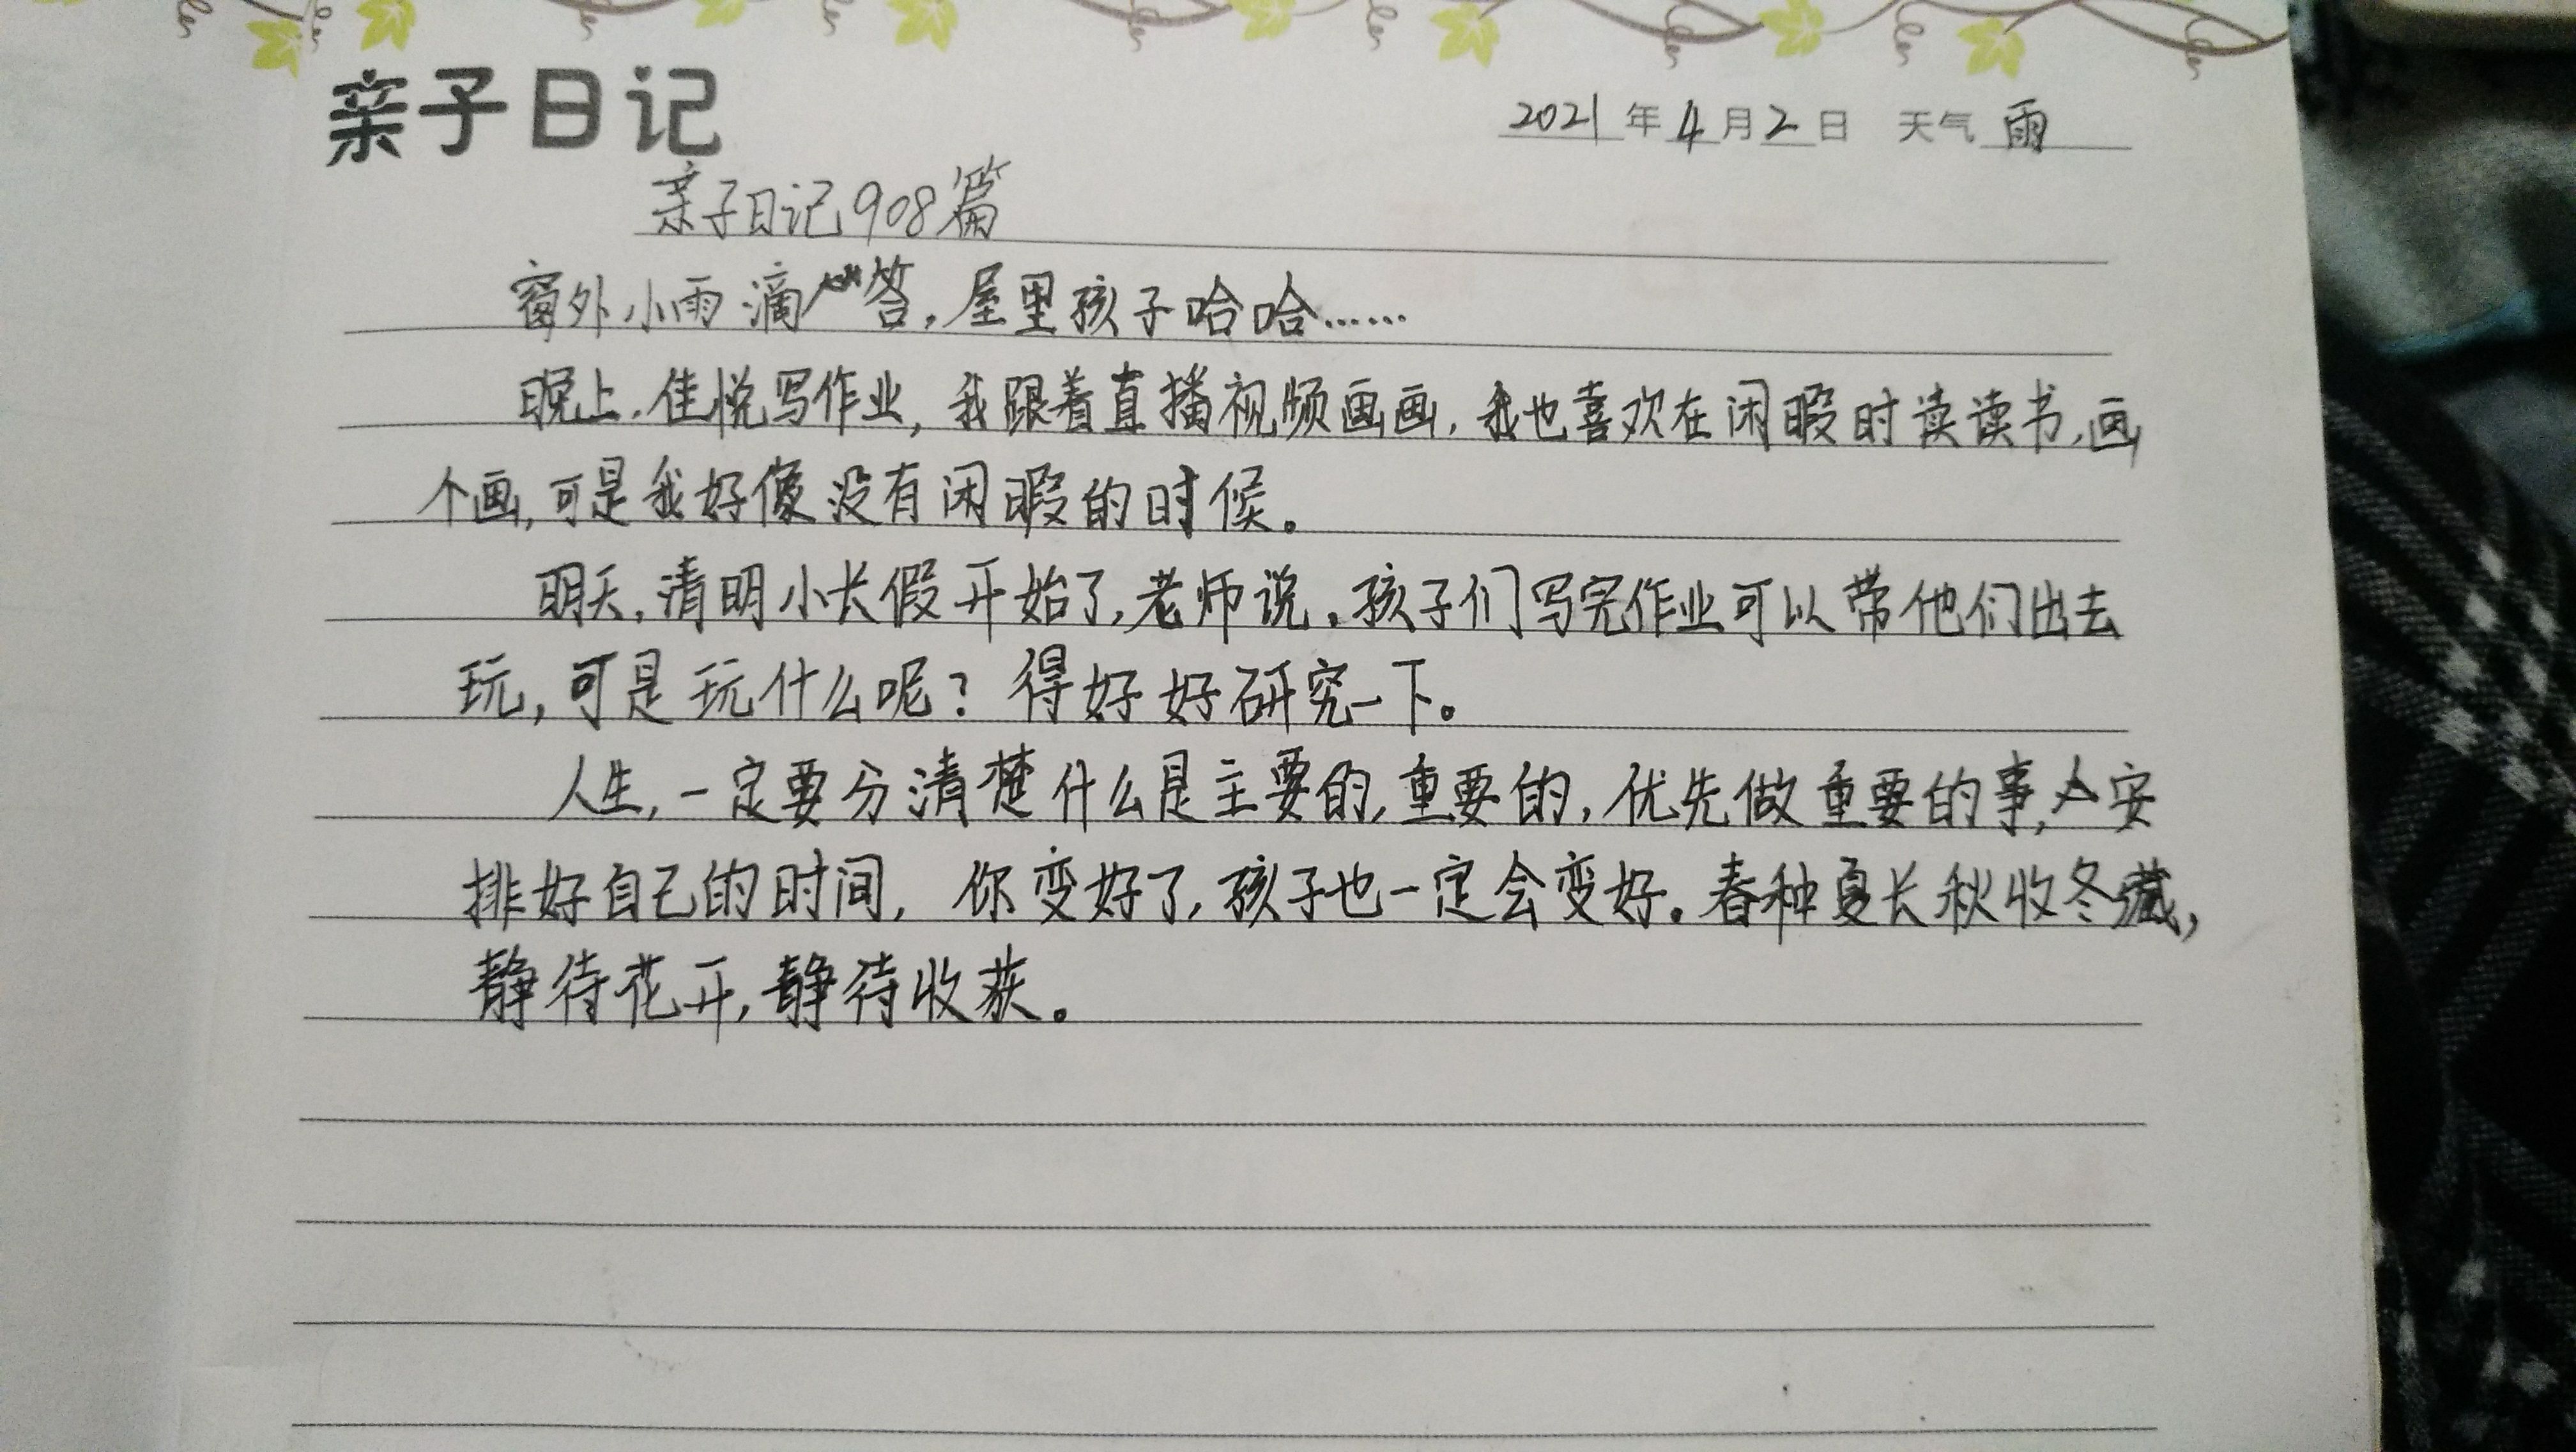 亲子日记
2021年4月2日 天气 雨
亲子日记908篇
窗外小雨滴答,屋里孩子哈哈……
晚上,佳悦写作业,我跟着直播视频画画,我也喜欢在闲暇时读读书,画
个画,可是我好像没有闲暇的时候。
明天,清明小长假开始了,老师说,孩子们写完作业可以带他们出去
玩,可是玩什么呢?得好好研究一下。
人生,一定要分清楚什么是主要的,重要的,优先做重要的事,安
排好自己的时间,你变好了,孩子也一定会变好。春种夏长秋收冬藏,
静待花开,静待收获。